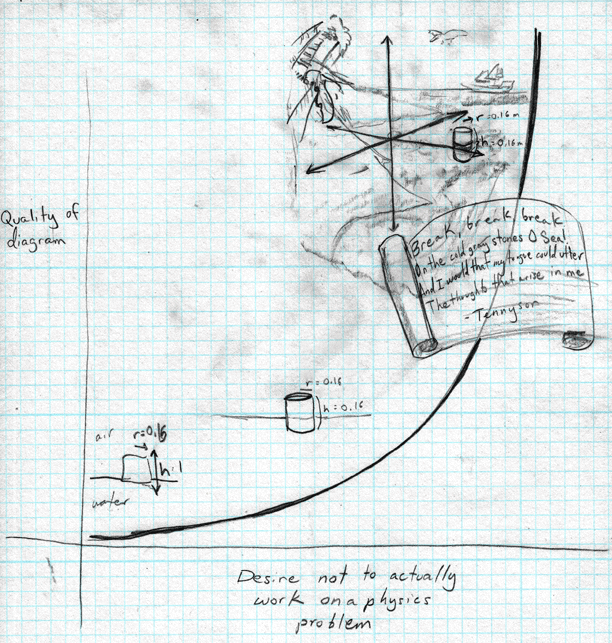 r=0.16m
h=0.16m
Quality of
diagram
Break, break, break
On the cold gray stones O Sea!
And I would that my tongue could utter
The thoughts that arise in me
- Tennyson
r=0.16
h=0.16
air
r=0.16
h=1
water
Desire not to actually
work on a physics
problem